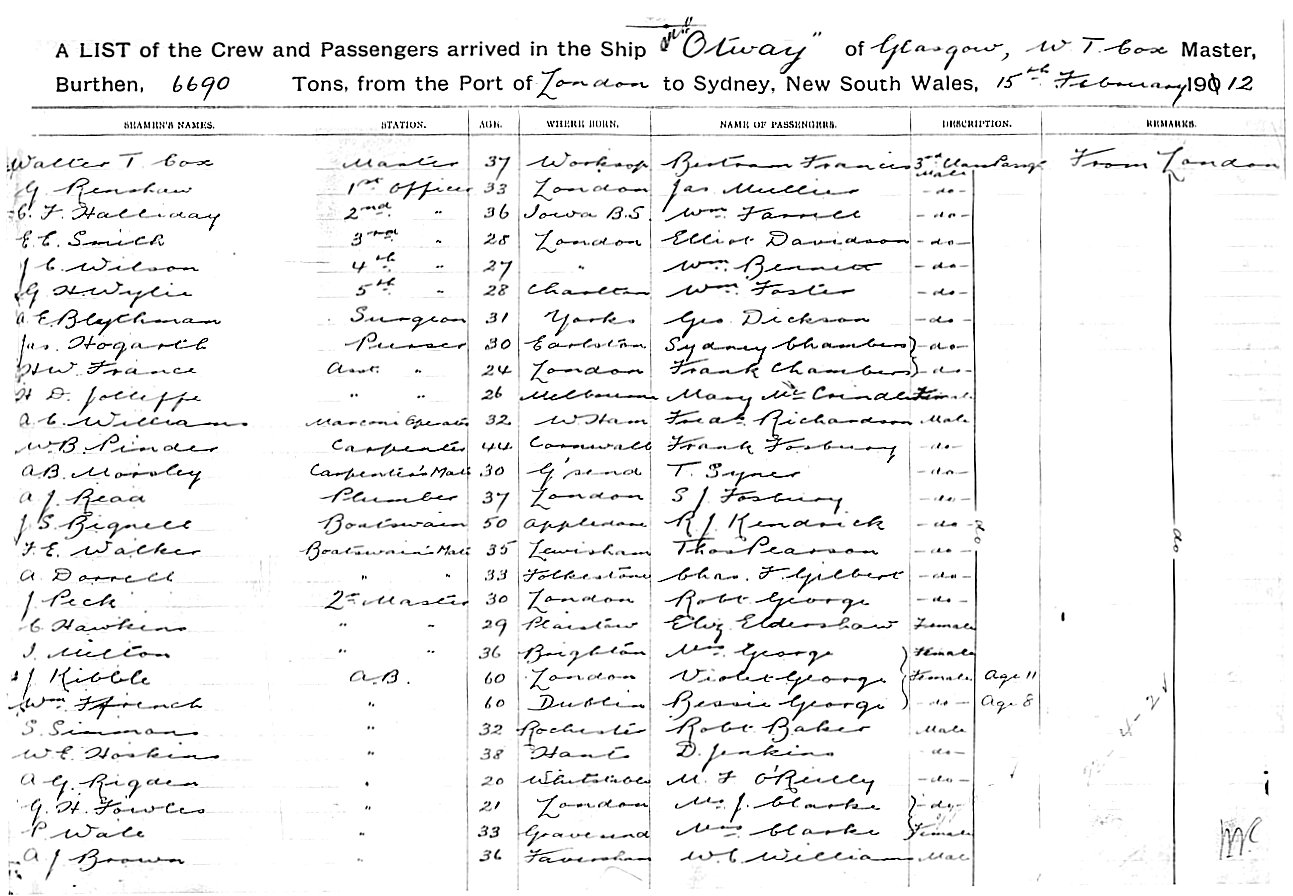 A LIST of the Crew and Passengers arrived in the Ship "Otway" of Glasgow, W. T. Cox Master,
Burthen, 6690 Tons, from the Port of London to Sydney, New South Wales, 15th February 1912
SEAMEN'S NAMES. STATION. AGE. WHERE BORN. NAME OF PASSENGERS. DESCRIPTION. REMARKS.
Walter T. Cox Master 37 Worksop Bertram Francis 3rd Class Passgr From London
Male
G Renshaw 1st Officer 33 London Jas Mullier -do-
C. F. Halliday 2nd " 36 Iowa B.S. Wm Farrell -do-
E C. Smith 3rd " 28 London Elliot Davidson -do-
J C. Wilson 4th " 27 " Wm Bennett -do-
G H Wylie 5th " 28 Charlton Wm Foster -do-
A E Blythman Surgeon 31 Yorks Geo. Dickson -do-
Jas. Hogarth Purser 30 Earlston Sydney Chambers -do-
H W. France Asst. " 24 London Frank Chambers -do-
H D. Jolliffe " " 26 Melbourne Mary McCrindle Female
A C. Williams Marconi Operator 32 W Ham Fredk Richardson Male
W. B. Pinder Carpenter 44 Cornwall Frank Fosbury -do-
A B. Morsley Carpenter's Mate 30 G'send T. Syner -do-
A J. Read Plumber 37 London S J Fosbury -do-
J S. Bignell Boatswain 50 Appledore R J Kendrick -do- do do
F. E. Walker Boatswain's Mate 35 Lewisham Thos Pearson -do-
A. Dorrell " " 33 Folkestone Chas. F. Gilbert -do-
J Peck 2r Master 30 London Robt George -do-
C Hawkins " " 29 Plaistow Eliz Eldershaw Female
J. Milton " " 36 Brighton Mrs George Female
J Kibble A.B. 60 London Violet George Female Age 11
Wm Ffrench " 60 Dublin Bessie George -do- Age 8
S Simmons " 32 Rochester Robt Baker Male
W. E. Hoskins " 38 Hants D. Jenkins -do-
A G. Rigden " 20 Whitstable M. F O'Reilly -do-
G. H. Fowles " 21 London Mr J. Clarke -do-
P Wale " 33 Gravesend Mrs Clarke Female
A J Brown " 36 Faversham W. C Williams Male